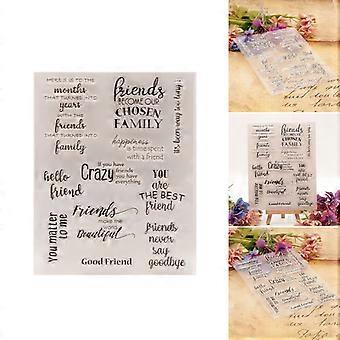 HERE IS TO THE
months
THAT TURNED INTO
years
WITH THE
friends
THAT TURNED INTO
family
friends
BECOME OUR
CHOSEN
FAMILY
happiness
is time spent
with a friend
It's been way too long!
hello
friend
If you have
Crazy friends
you have
everything
YOU
ARE
THE BEST
friend
You matter
to me
Friends
make the world
Beautiful
friends
never
say
goodbye
Good Friend